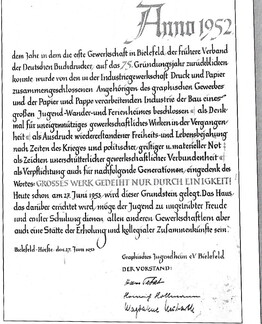 Anno 1952
dem Jahr in dem die erste Gewerkschaft in Bielefeld, der frühere Verband
der Deutschen Buchdrucker, auf das 75. Gründungsjahr zurückblicken
konnte wurde von den in der Industriegewerkschaft Druck und Papier
zusammengeschlossenen Angehörigen des graphischen Gewerbes
und der Papier und Pappe verarbeitenden Industrie der Bau eines
großen Jugend-Wander-und Ferienheimes beschlossen als Denk-
mal für uneigennütziges gewerkschaftliches Wirken in der Vergangen-
heit als Ausdruck wiedererstandener Freiheits- und Lebensbejahung
nach Zeiten des Krieges und politischer, geistiger u. materieller Not
als Zeichen unerschütterlicher gewerkschaftlicher Verbundenheit
als Verpflichtung auch für nachfolgende Generationen, eingedenk des
Wortes: GROSSES WERK GEDEIHT NUR DURCH EINIGKEIT!
Heute schon, am 27. Juni 1952 wird dieser Grundstein gelegt. Das Haus
das darüber errichtet wird, möge der Jugend zu ungetrübter Freude
und ernster Schulung dienen, allen anderen Gewerkschaftlern aber
auch eine Stätte der Erholung und kollegialer Zusammenkünfte sein.
Bielefeld, den 27. Juni 1952
Graphisches Jugendheim eV Bielefeld
DER VORSTAND: